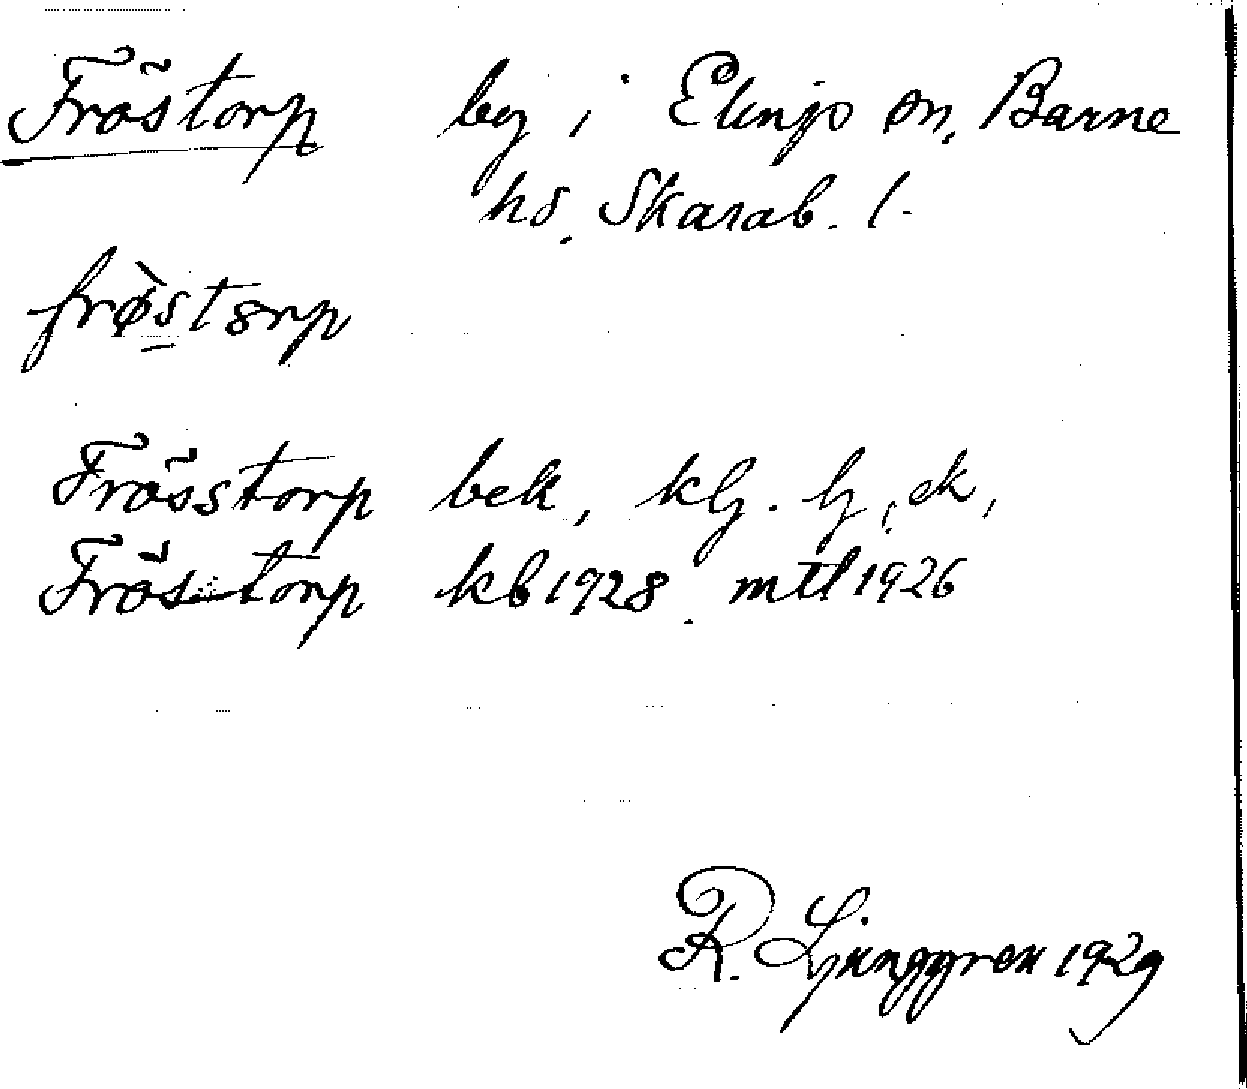 Fröstorp by i Elmjo sn, Barne
hd. Skarab. l.
frøstorp
Frösstorp bek,
Fröstorp kb 1928. mtl 1926
R. Ljunggren 1929